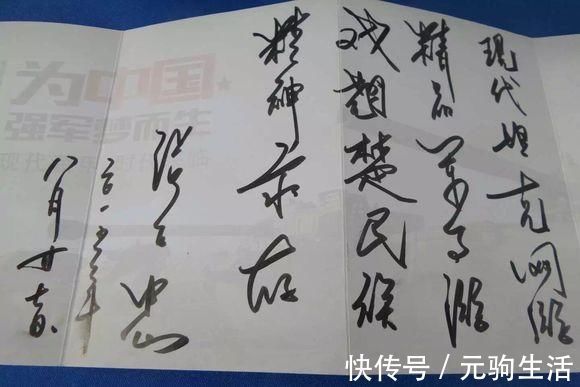 现代坦克网游
精品军事游
戏翘楚民族
精神永存
二〇一五年
八月廿
为中国
强军梦而生
现代
快传号 / 元驹生活